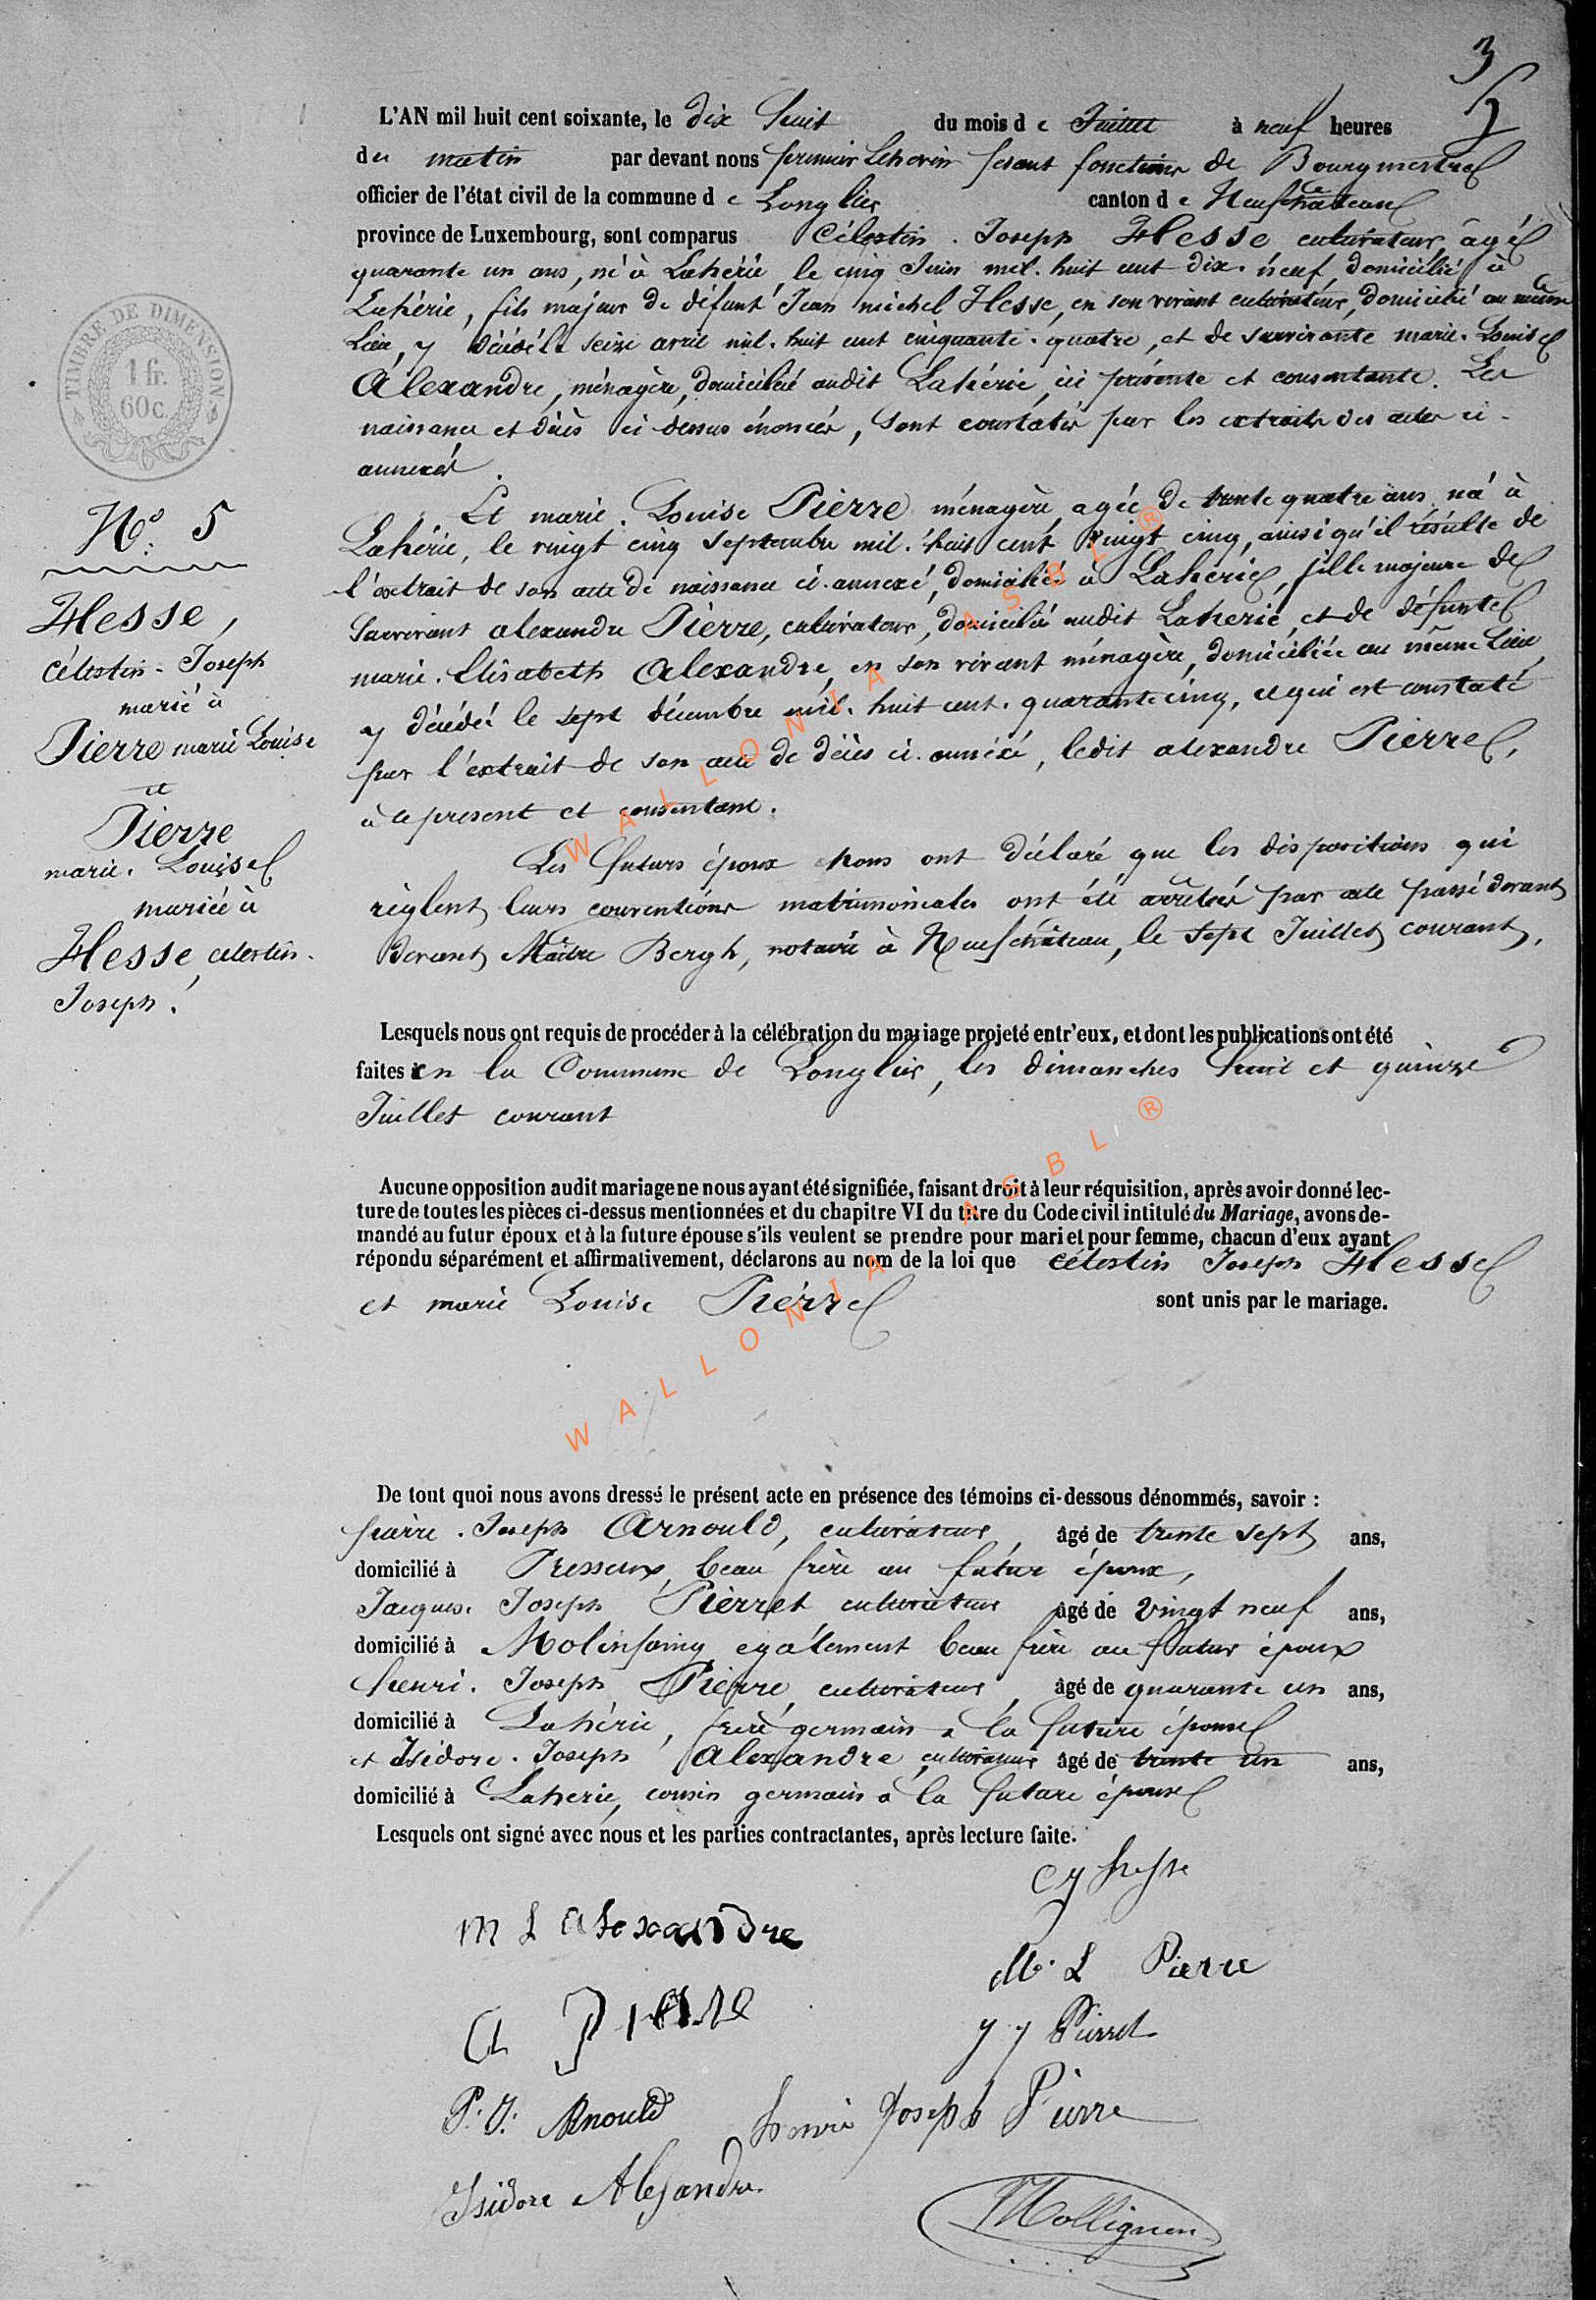 3
5
L'AN mil huit cent soixante, le dix huit du mois d e Juillet à neuf heures
du matin par devant nous premier Echevin fesant fonctions de Bourgmestre
officier de l'état civil de la commune d e Longlier canton d e Neufchâteau
province de Luxembourg, sont comparus Célestin. Joseph Hesse cultivateur, âgé
quarante un ans, né à Lahérie, le cinq Juin mil. huit cent dix. neuf, domicilié à
Lahérie, fils majeur de défunt Jean michel Hesse, en son vivant cultivateur, domicilié au même
Lieu, y décédé le seize avril mil. huit cent cinquante. quatre, et de survivante marie. Louise
Alexandre, ménagère, domiciliée audit Lahérie, ici présente et consentante. Les
naissance et décès ci dessus énoncés, sont constatés par les extraits des actes ci-
annexés.
Et marie. Louise Pierre ménagère, agée de trente quatre ans, né à
Lahérie, le vingt cinq septembre mil. huit cent vingt cinq, ainsi qu'il résulte de
l'extrait de son acte de naissance ci. annexé, domicilié à Lahérie, fille majeure de
survivant alexandre Pierre, cultivateur, domicilié audit Lahérie, et de défunte
marie. Elisabeth Alexandre, en son vivant ménagère, domiciliée au même Lieu,
y décédé le sept décembre mil. huit cent. quarante cinq, ce qui est constaté
par l'extrait de son acte de décès ci. annéxé, ledit alexandre Pierre,
à ce present et consentant.
Les futurs époux nous ont déclaré que les dispositions qui
règlent leurs conventions matrimoniales ont été arrêtées par acte passé devant
devant Maître Bergh, notaire à Neufchâteau, le sept Juillet courant.
Lesquels nous ont requis de procéder à la célébration du mariage projeté entr'eux, et dont les publications ont été
faites en la Commune de Longlier, les dimanches huit et quinze
Juillet courant
Aucune opposition audit mariage ne nous ayant été signifiée, faisant droit à leur réquisition, après avoir donné lec-
ture de toutes les pièces ci-dessus mentionnées et du chapitre VI du titre du Code civil intitulé du Mariage, avons de-
mandé au futur époux et à la future épouse s'ils veulent se prendre pour mari et pour femme, chacun d'eux ayant
répondu séparément et affirmativement, déclarons au nom de la loi que célestin Joseph Hesse
et marie Louise Pierre sont unis par le mariage.
De tout quoi nous avons dressé le présent acte en présence des témoins ci-dessous dénommés, savoir :
pierre. Joseph Arnould, cultivateur, âgé de trente sept ans,
domicilié à Presseux, beau frère au futur époux,
Jacques. Joseph Pierret cultivateur âgé de vingt neuf ans,
domicilié à Molinfaing également beau frère au futur époux
henri. Joseph Pierre, cultivateur, âgé de quarante un ans,
domicilié à Lahérie, frère germain à la future épouse
et Isidore. Joseph Alexandre, cultivateur âgé de trente un ans,
domicilié à Lahérie, cousin germain à la future épouse
Lesquels ont signé avec nous et les parties contractantes, après lecture faite.
C J hesse
M L alexandre
M. L Pierre
A Pierre
J J Pierret
P. J. Arnould
henri Joseph Pierre
Isidore Alexandre
Collignon
TIMBRE DE DIMENSION
1 fr.
60 c.
No. 5
Hesse,
Célestin - Joseph
marié à
Pierre marie Louise
et
Pierre
marie. Louise
mariée à
Hesse, célestin.
Joseph.
WALLONIA ASBL ®
WALLONIA ASBL ®